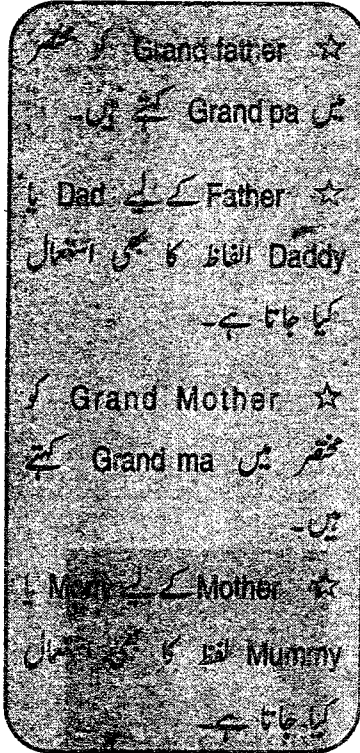 ☆ Grand father کو مختصر
میں Grand pa کہتے ہیں۔
☆ Father کے لیے Dad یا
Daddy الفاظ کا بھی استعمال
کیا جاتا ہے۔
☆ Grand Mother کو
مختصر میں Grand ma کہتے
ہیں۔
☆ Mother کے لیے یا
Mummy لفظ کا بھی استعمال
کیا جاتا ہے۔